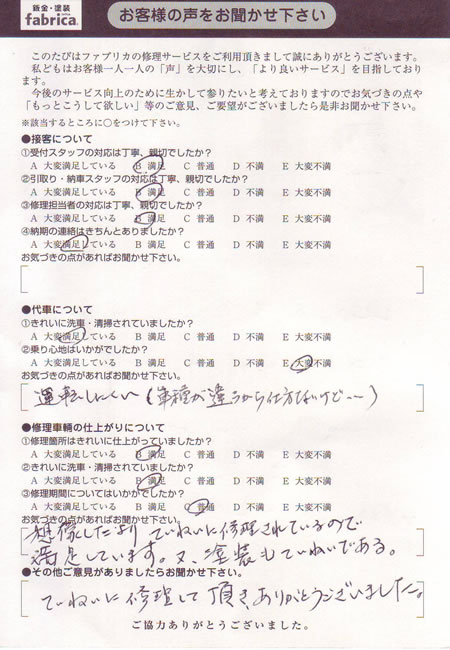 鈑金・塗装
fabrica.
お客様の声をお聞かせ下さい
このたびはファブリカの修理サービスをご利用頂きまして誠にありがとうございます。
私どもはお客様一人一人の「声」を大切にし、「より良いサービス」を目指しており
ます。
今後のサービス向上のために生かして参りたいと考えておりますのでお気づきの点や
「もっとこうして欲しい」等のご意見、ご要望がございましたら是非お聞かせ下さい。
※該当するところに○をつけて下さい。
●接客について
①受付スタッフの対応は丁寧、親切でしたか？
A 大変満足している B 満足 C 普通 D 不満 E 大変不満
②引取り・納車スタッフの対応は丁寧、親切でしたか？
A 大変満足している B 満足 C 普通 D 不満 E 大変不満
③修理担当者の対応は丁寧、親切でしたか？
A 大変満足している B 満足 C 普通 D 不満 E 大変不満
④納期の連絡はきちんとありましたか？
A 大変満足している B 満足 C 普通 D 不満 E 大変不満
お気づきの点があればお聞かせ下さい。
●代車について
①きれいに洗車・清掃されていましたか？
A 大変満足している B 満足 C 普通 D 不満 E 大変不満
②乗り心地はいかがでしたか？
A 大変満足している B 満足 C 普通 D 不満 E 大変不満
お気づきの点があればお聞かせ下さい。
運転しにくい(車種が違うから仕方ないけど…)
●修理車輌の仕上がりについて
①修理箇所はきれいに仕上がっていましたか？
A 大変満足している B 満足 C 普通 D 不満 E 大変不満
②きれいに洗車・清掃されていましたか？
A 大変満足している B 満足 C 普通 D 不満 E 大変不満
③修理期間についてはいかがでしたか？
A 大変満足している B 満足 C 普通 D 不満 E 大変不満
お気づきの点があればお聞かせ下さい。
想像したより ていねいに修理されているので
満足しています。又、塗装もていねいである。
●その他ご意見がありましたらお聞かせ下さい。
ていねいに修理して頂き、ありがとうございました。
ご協力ありがとうございました。